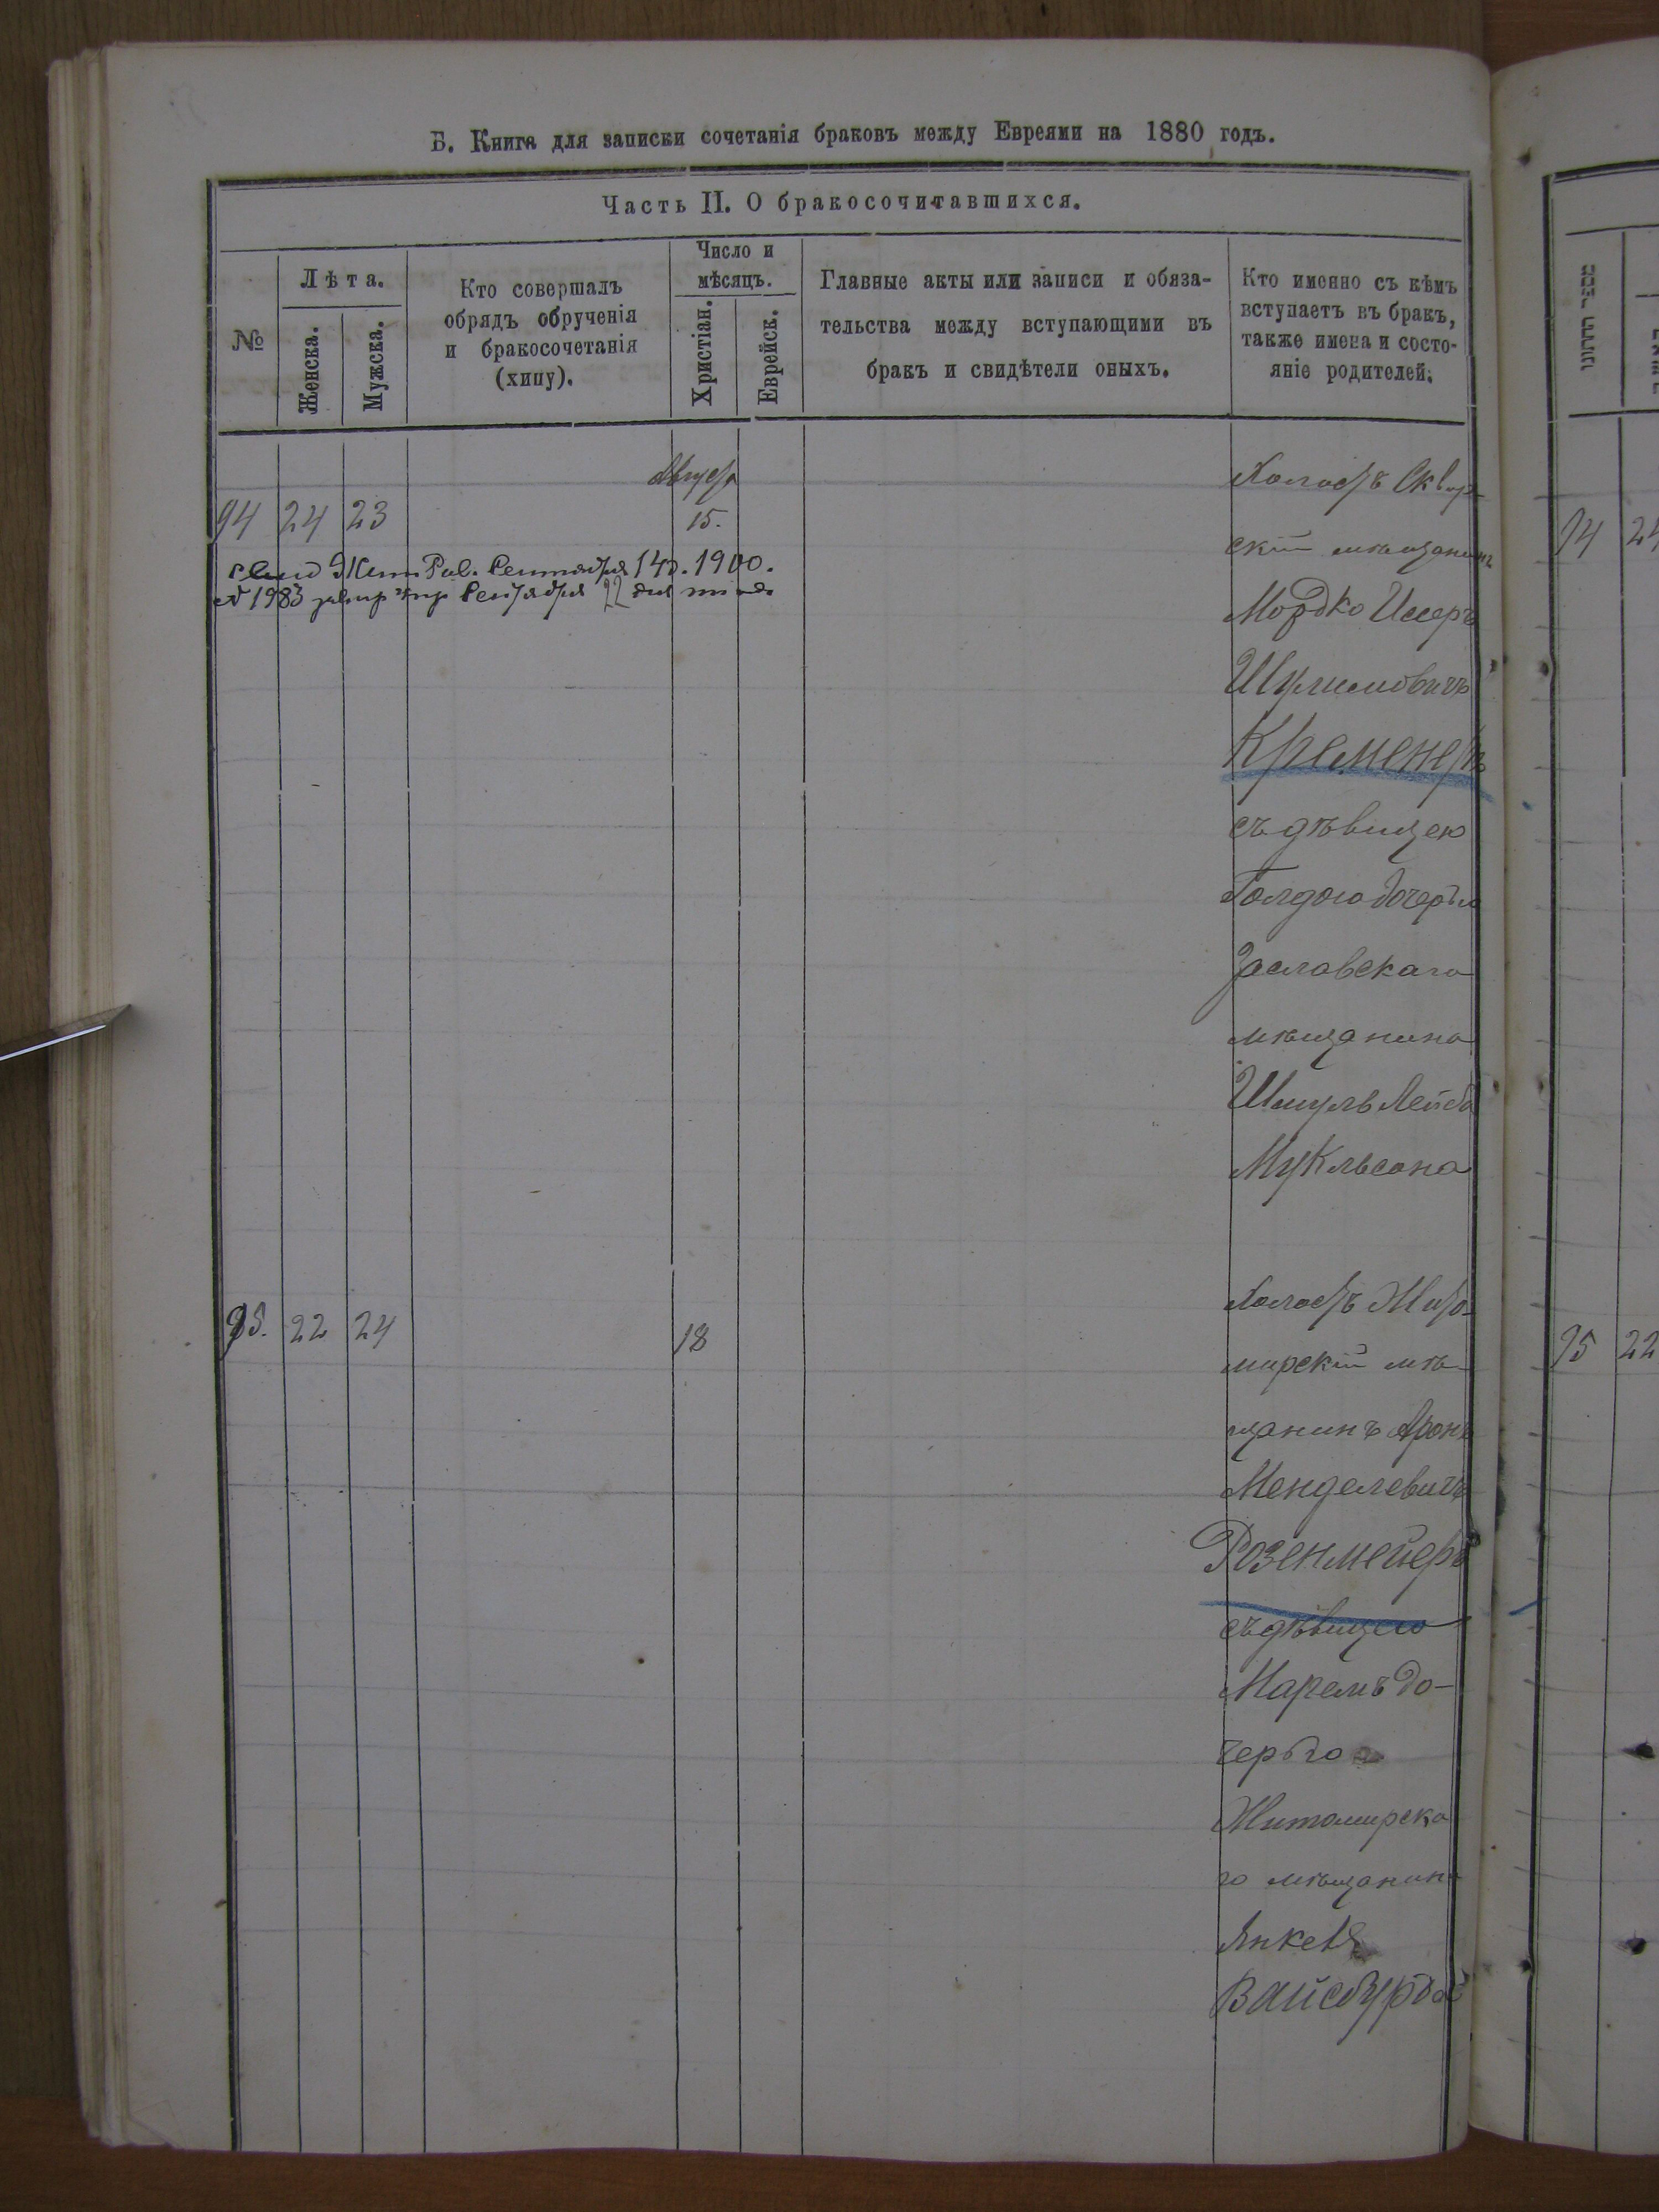 Б. Книга для записки сочетанія браковъ между Евреями на 1880 годъ.
Часть II. О бракосочитавшихся.
№
Лѣта.
Женска.
Мужска.
Кто совершалъ
обрядъ обрученія
и бракосочетанія
(хипу).
Число и
мѣсяцъ.
Христіан.
Еврейск.
Главные акты или записи и обяза-
тельства между вступающими въ
бракъ и свидѣтели оныхъ.
Кто именно съ кѣмъ
вступаетъ въ бракъ,
также имена и состо-
яніе родителей.
Август
94 24 23 15.
Жит. Рав. Сентября 14 д. 1900.
№ 1983 Сентября 22 дня
Холостъ Сквир-
скій мѣщанинъ
Мордко Иссеръ
Шулимовичъ
Кременеръ
съ дѣвицею
Голдою дочерью
Заславскаго
мѣщанина
Шмуль Лейба
Мукльсона
95. 22 24 18
Холостъ Жито-
мирскій мѣ-
щанинъ Аронъ
Менделевичъ
Розенмейеръ
съ дѣвицею
Маремъ до-
черью
Житомирска
го мѣщанина
Янкеля
Вайсбурда
מספר הזרונו
94 24
95 22